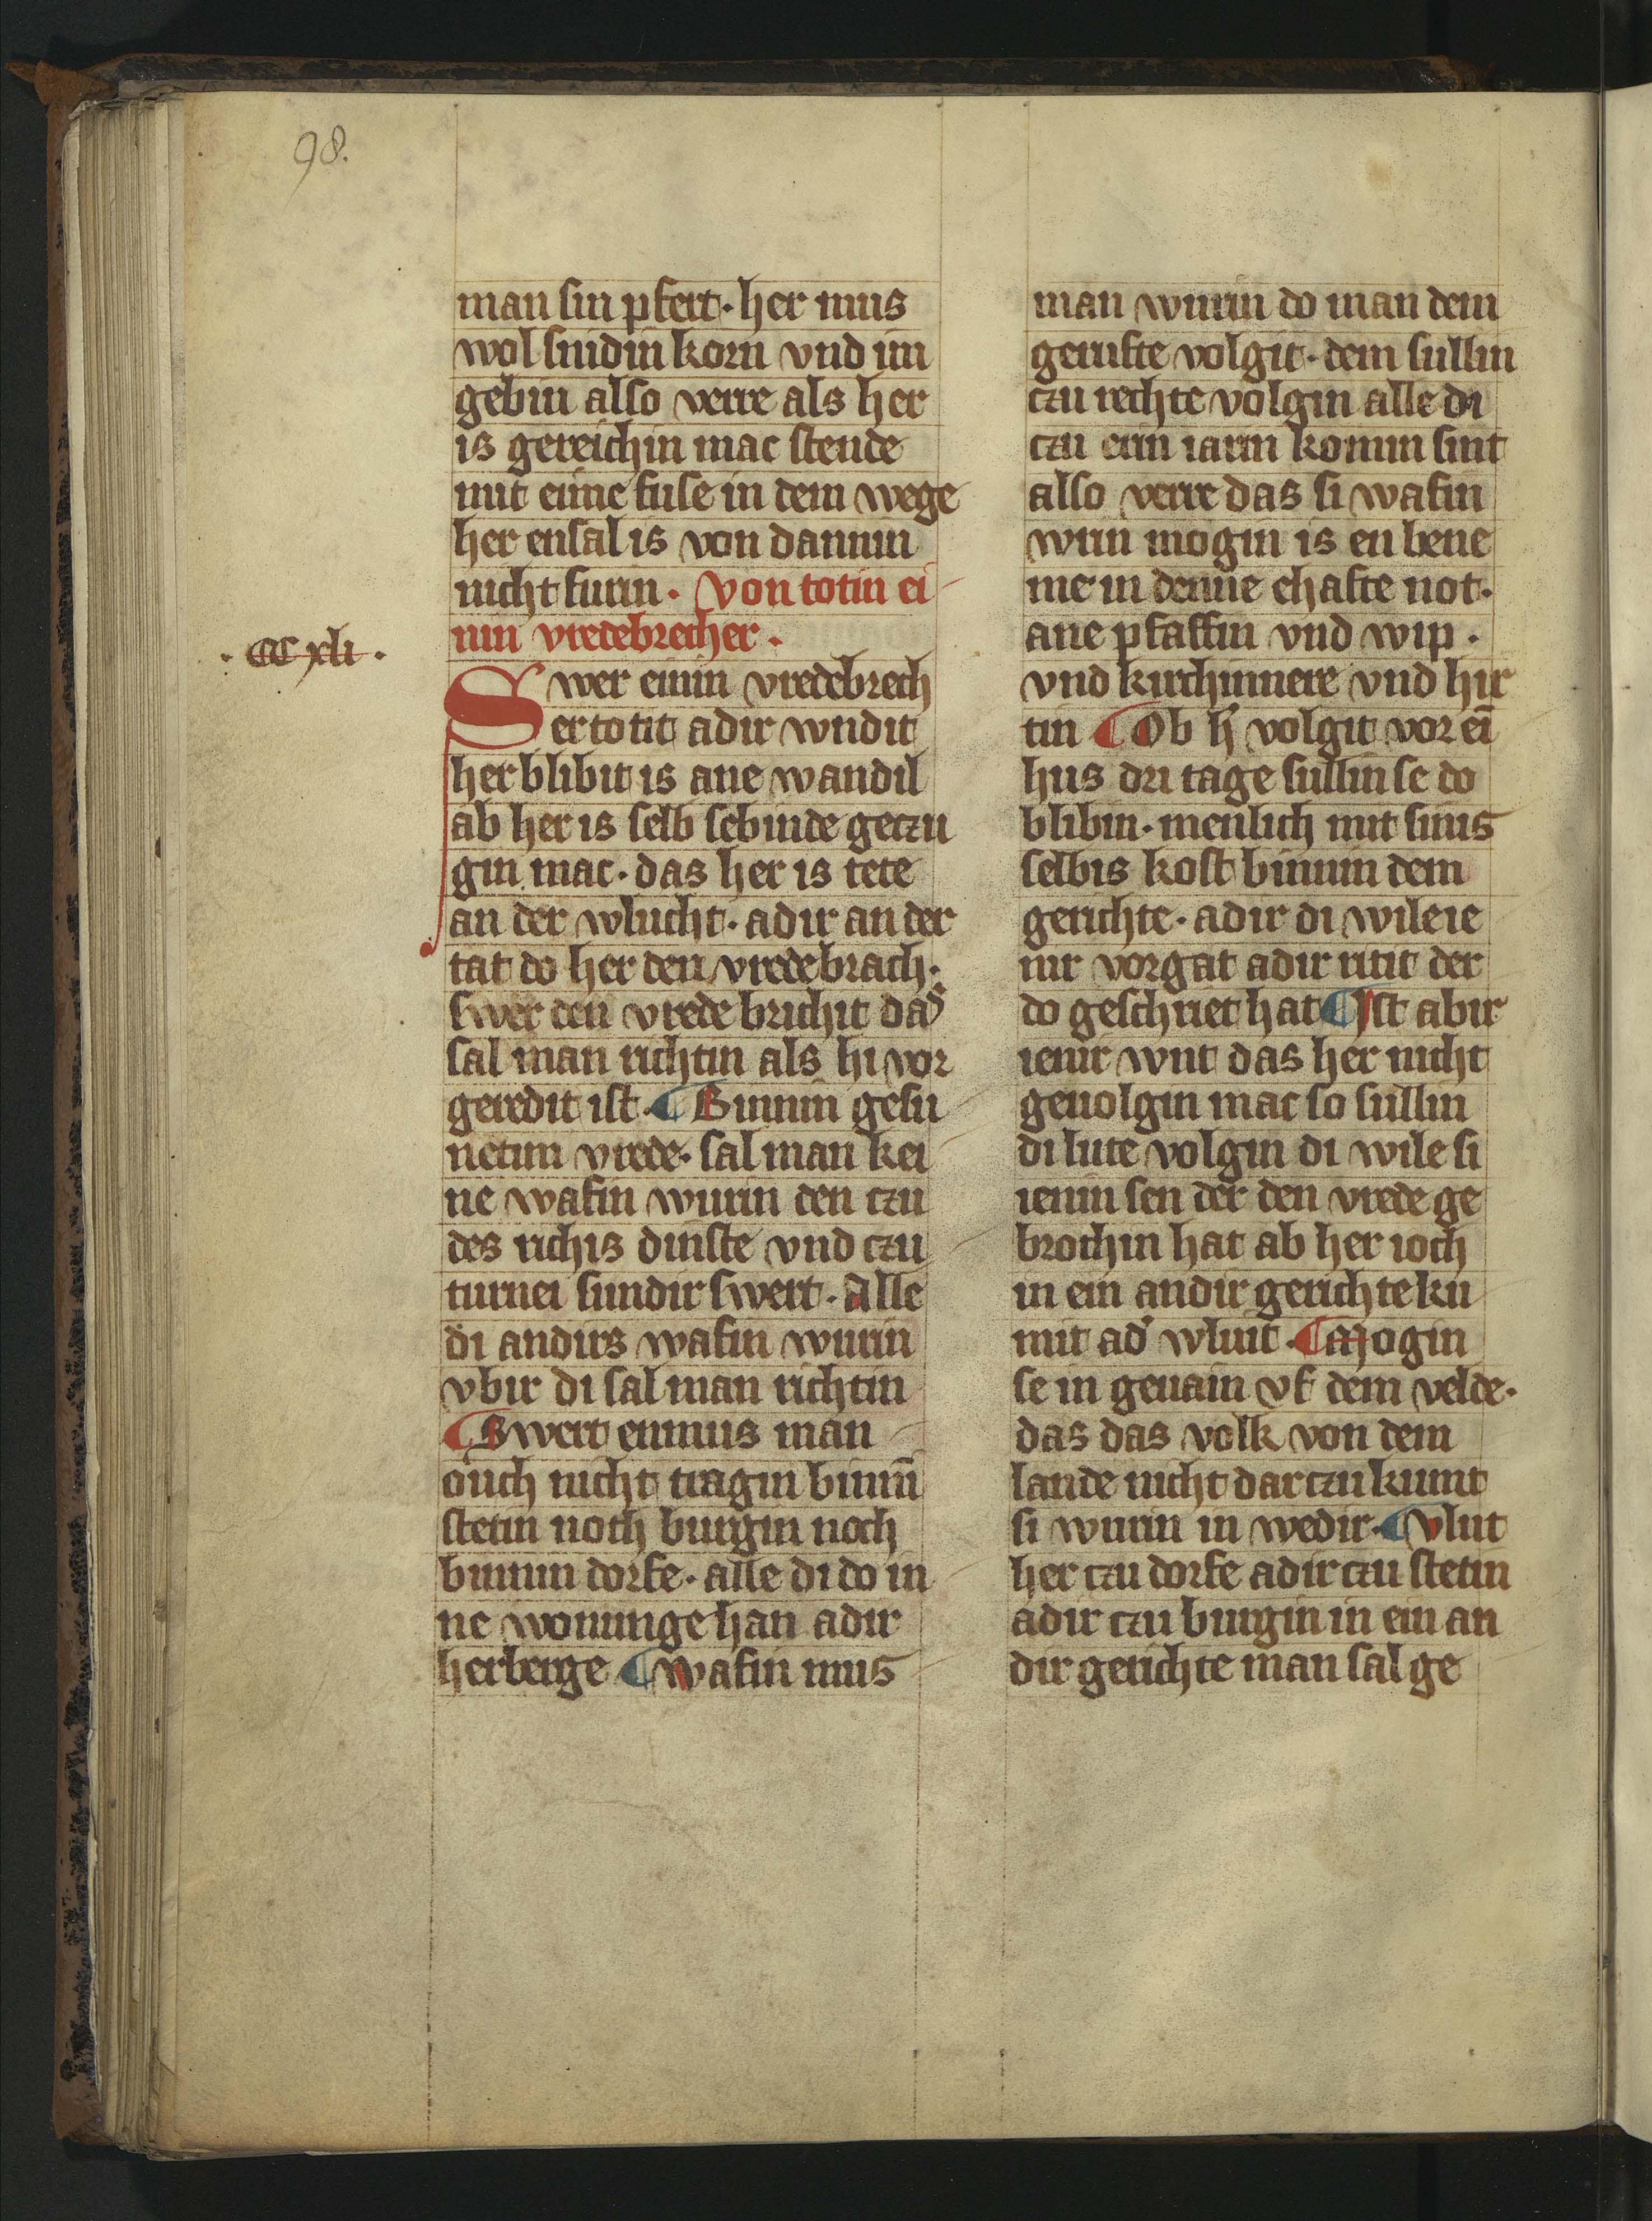 98.
man sin pfert. her mus
wol snidin korn vnd im
gebin also verre als her
is gereichin mac stende
mit eime fuse in dem wege
her ensal is von dannin
nicht furin. Von totin ei
nin vredebrecher.
. CC xli .
Swer einin vredebrech
er totit adir wndit
her blibit is ane wandil
ab her is selb sebinde geczu
gin mac. das her is tete
an der wlucht. adir an der
tat do her den vredebrach.
swer den vrede brichit das
sal man richtin als hi vor
geredit ist. ¶ Binnin gesu
netim vrede. sal man kei
ne wafin wurin den czu
des richis dinste vnd czu
turnei sundir swert. Alle
di andirs wafin wurin
vbir di sal man richtin
¶ Swert enmus man
ouch nicht tragin binnī
stetin noch burgin noch
binnin dorfe. alle di do in
ne wonunge han adir
herberge ¶ wafin mus
man wurin do man dem
gerufte volgit. dem sullin
czu rechte volgin alle di
czu erin iarin komin sint
also verre das si wafin
wrin mogin is en bene
me in denne ehafte not.
ane pfaffin vnd wip.
vnd kirchinnere vnd hir
tin ¶ Ob h' volgit vor eī
hus dri tage sullin se do
blibin. menlich mit sinis
selbis kost binnin dem
gerichte. adir di wile ie
nir vorgat adir ritit der
do geschriet hat ¶ Ist abir
ienir wnt das her nicht
geuolgin mac so sullin
di lute volgin di wile si
ienin sen der den vrede ge
brochin hat ab her ioch
in ein andir gerichte ku
mit ad' wluit. ¶ Mogin
se in geuain vf dem velde.
das das volk von dem
lande nicht darczu kumt
si wurin in wedir. ¶ vlut
her czu dorfe adir czu stetin
adir czu burgin in ein an
dir gerichte man sal ge